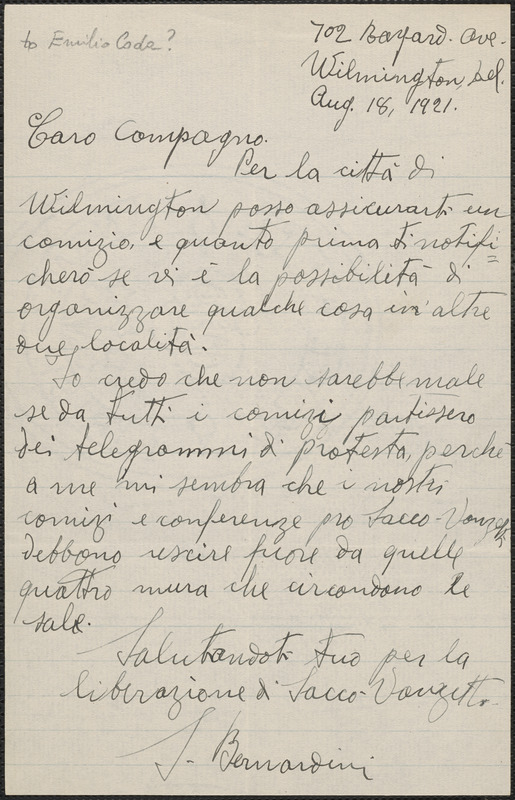 to Emilio Coda?
702 Bayard. Ave.
Wilmington, Del.
Aug. 18, 1921.
Caro Compagno.
Per la città di
Wilmington posso assicurarti un
comizio, e quanto prima ti notifi=
cherò se vi è la possibilità di
organizzare qualche cosa in altre
due località.
Io credo che non sarebbe male
se da tutti i comizi partissero
dei telegrammi di protesta, perchè
a me mi sembra che i nostri
comizi e conferenze pro Sacco-Vanzetti
debbono uscire fuore da quelle
quattro mura che circondono le
sale.
Salutandoti tuo per la
liberazione di Sacco-Vanzetti.
S. Bernardini